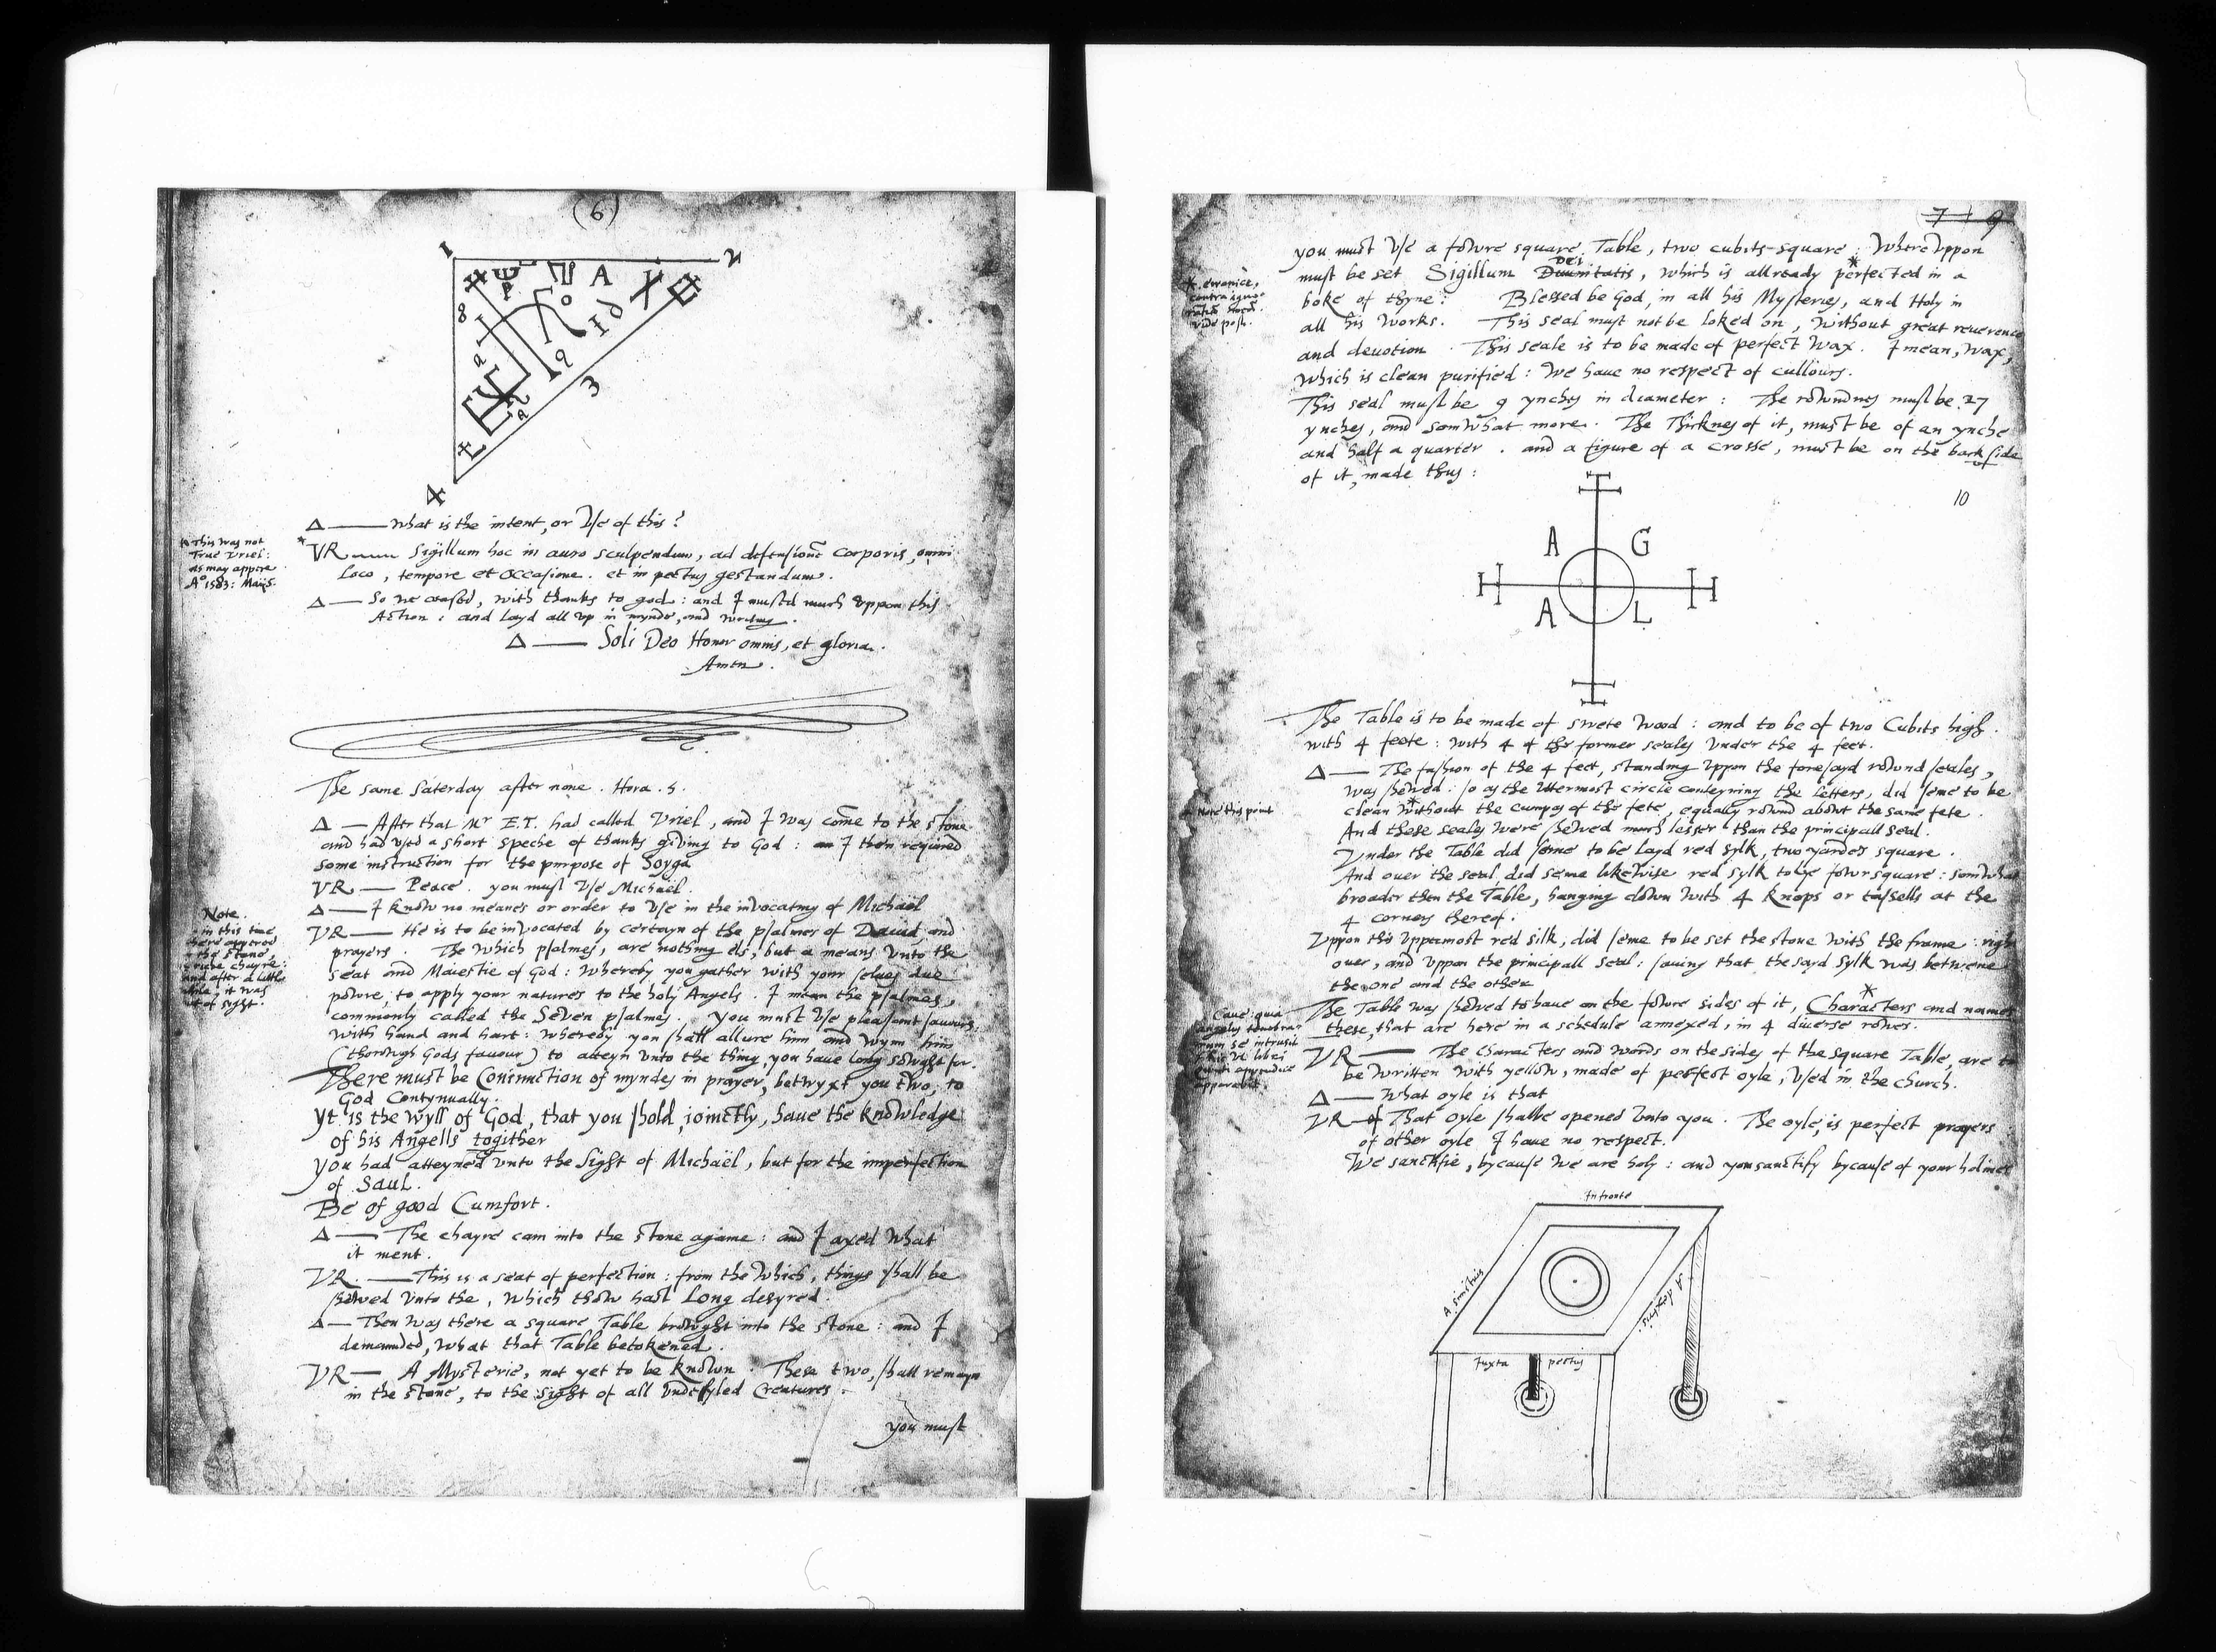 (6)
1 2
8
3
4
Δ — What is the intent, or Use of this?
* This was not
True Vriel:
as may appere
A° 1583: Maij 5.
VR — Sigillum hoc in auro sculpendum, ad defensionē Corporis, omni
Loco, tempore et Occasione. et in pectus gestandum.
Δ — So we ceased, with thanks to god: and I mused much uppon this
Action: and layd all up in mynde, and writing.
Δ — Soli Deo Honor omnis, et gloria.
Amen.
The same Saterday after none. Hora. 5.
Δ — After that Mr E.T. had called Vriel, and I was come to the stone
and had used a short speche of thanks giving to God: I then required
some instruction for the purpose of Soyga
VR — Peace. you must Use Michaël.
Δ — I know no meanes or order to Use in the invocating of Michaël
VR — He is to be invocated by certeyn of the psalmes of Dauid, and
prayers. The which psalmes, are nothing els, but a means unto the
seat and Maiestie of God: whereby you gather with your selues due
powre, to apply your natures to the holy Angels. I mean the psalmes,
commonly called the Seven psalmes. You must Use pleasant sauours:
with hand and hart: whereby you shall allure him and wynn him
(thorowgh Gods fauour) to atteyn unto the thing, you have long sowght for.
There must be Coniunction of myndes in prayer, betwyxt you two, to
God Contynually.
Yt is the wyll of God, that you shold, ioinctly, haue the knowledge
of his Angells togither
You had atteyned unto the Sight of Michaël, but for the imperfection
of Saul.
Be of good Cumfort.
Note.
in this time
there appered
in the stone,
a riche chayre:
and after a little
while, it was
out of sight.
Δ — The chayre cam into the stone againe: and I axed what
it ment.
VR — This is a seat of perfection: from the which, things shall be
shewed unto the, which thow hast Long desyred.
Δ — Then was there a square Table browght into the stone: and I
demaunded, what that Table betokened.
VR — A Mysterie, not yet to be known. These two, shall remayn
in the stone, to the sight of all undefyled Creatures.
you must
7 9
you must Use a fowre square Table, two cubits square: Where uppon
must be set Sigillum Diuinitatis Dei, which is allready perfected in a
boke of thyne: Blessed be God, in all his Mysteries, and Holy in
all his works. This seal must not be loked on, without great reuerence
and deuotion. This seale is to be made of perfect wax. I mean, wax,
which is clean purified: We haue no respect of cullours.
This seal must be 9 ynches in diameter: The rowndnes must be 27
ynches, and somwhat more. The Thicknes of it, must be of an ynche
and half a quarter. and a figure of a crosse, must be on the back side
of it, made thus:
10
A G
A L
The Table is to be made of swete wood: and to be of two Cubits high
with 4 feete: with 4 of the former seales under the 4 feet.
Δ — The fashion of the 4 feet, standing uppon the foresayd rownd seales,
was shewed: so as the uttermost circle conteyning the letters, did seme to be
clean without the cumpas of the fete, equally rownd about the same fete.
* Note this point
And these seales were shewed much lesser than the principall seal.
Under the Table did seme to be layd red sylk, two yardes square.
And ouer the seal, did seme likewise red sylk to lye fowr square: somwhat
broader then the Table, hanging down with 4 knops or tassells at the
4 corners thereof.
Uppon this uppermost red silk, did seme to be set the stone with the frame: right
ouer, and uppon the principall seal: sauing that the sayd sylk was betwene
the one and the other.
The Table was shewed to haue on the fowre sides of it, Characters and names
these, that are here in a schedule annexed, in 4 diuerse rowes.
VR — The Characters and words on the sides of the square Table, are to
be written with yellow, made of perfect oyle, Used in the church.
Δ — What oyle is that
VR — That oyle shalbe opened unto you. The oyle, is perfect prayers
of other oyle I haue no respect.
We sanctifie, bycause we are holy: and you sanctify bycause of your holines
In fronte
A sinistris
A dextris.
Iuxta pectus